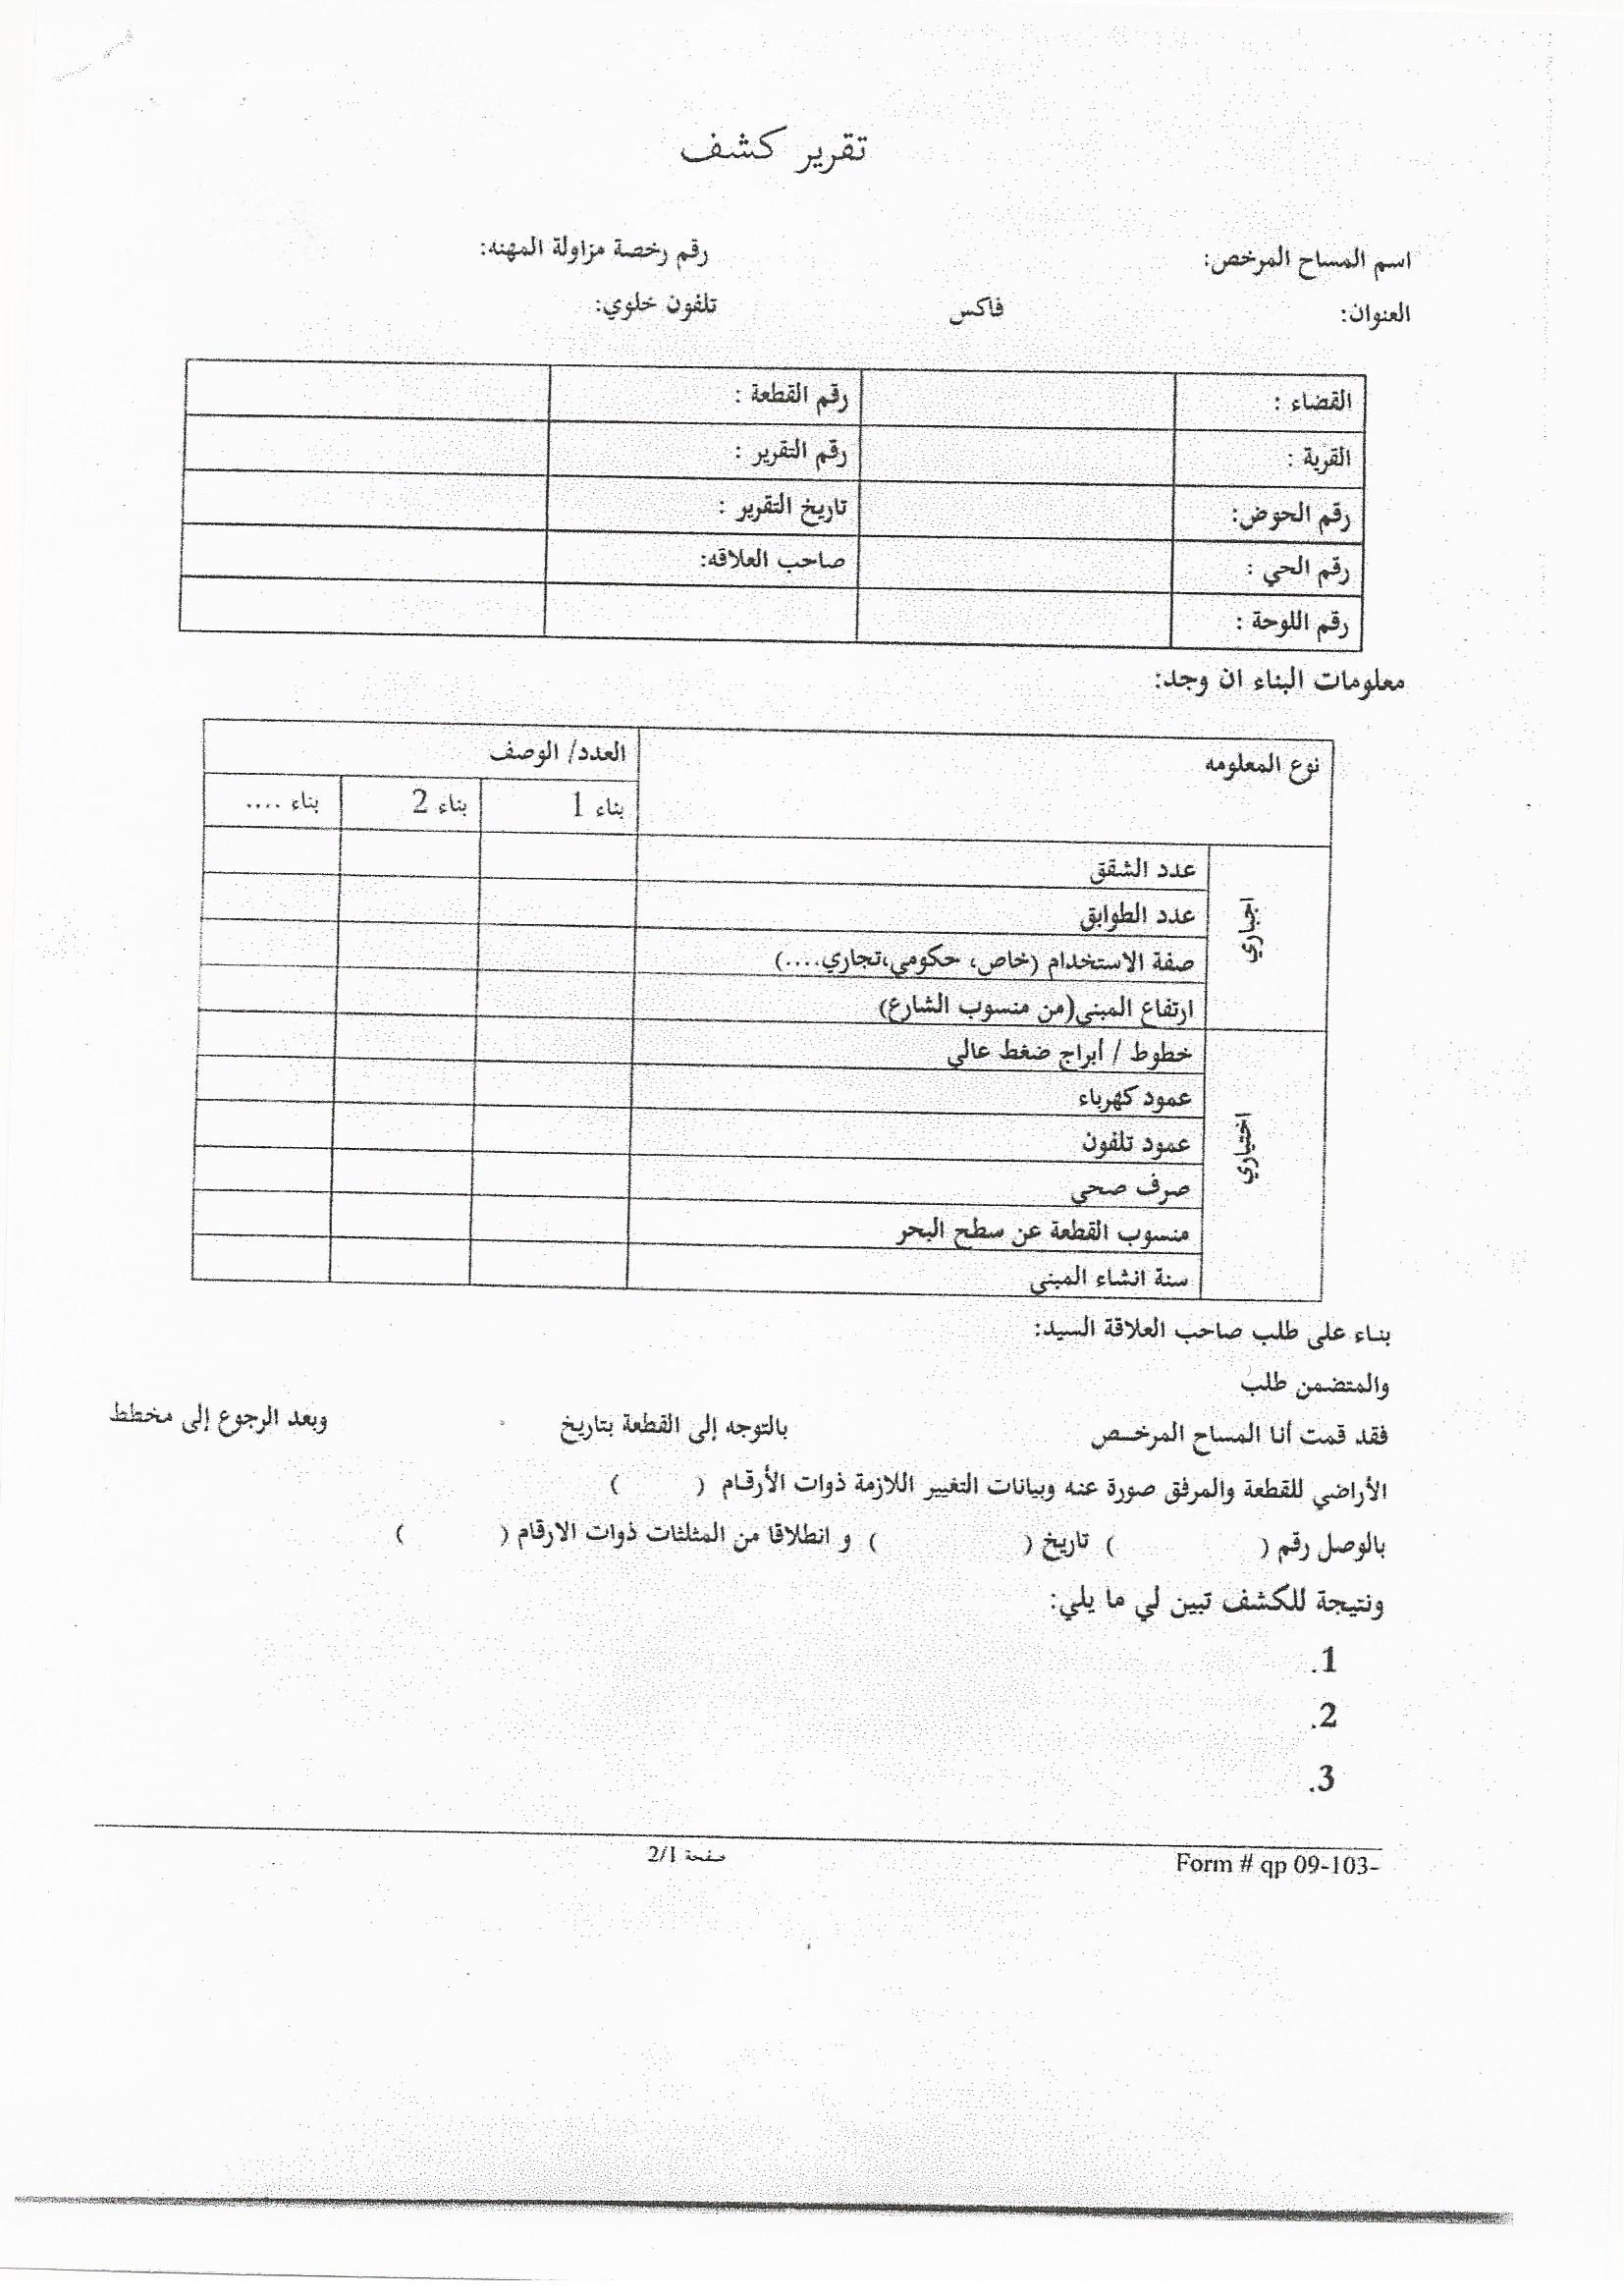 تقرير كشف
اسم المساح المرخص: رقم رخصة مزاولة المهنه:
العنوان: فاكس تلفون خلوي:
القضاء : رقم القطعة :
القرية : رقم التقرير :
رقم الحوض: تاريخ التقرير :
رقم الحي : صاحب العلاقه:
رقم اللوحة :
معلومات البناء ان وجد:
نوع المعلومه العدد/ الوصف
بناء 1 بناء 2 بناء ....
اجباري
عدد الشقق
عدد الطوابق
صفة الاستخدام (خاص، حكومي،تجاري....)
ارتفاع المبنى(من منسوب الشارع)
اختياري
خطوط / أبراج ضغط عالي
عمود كهرباء
عمود تلفون
صرف صحي
منسوب القطعة عن سطح البحر
سنة انشاء المبنى
بناء على طلب صاحب العلاقة السيد:
والمتضمن طلب
فقد قمت أنا المساح المرخص بالتوجه إلى القطعة بتاريخ وبعد الرجوع إلى مخطط
الأراضي للقطعة والمرفق صورة عنه وبيانات التغيير اللازمة ذوات الأرقام ( )
بالوصل رقم ( ) تاريخ ( ) و انطلاقا من المثلثات ذوات الارقام ( )
ونتيجة للكشف تبين لي ما يلي:
1.
2.
3.
Form # qp 09-103- صفحة 2/1